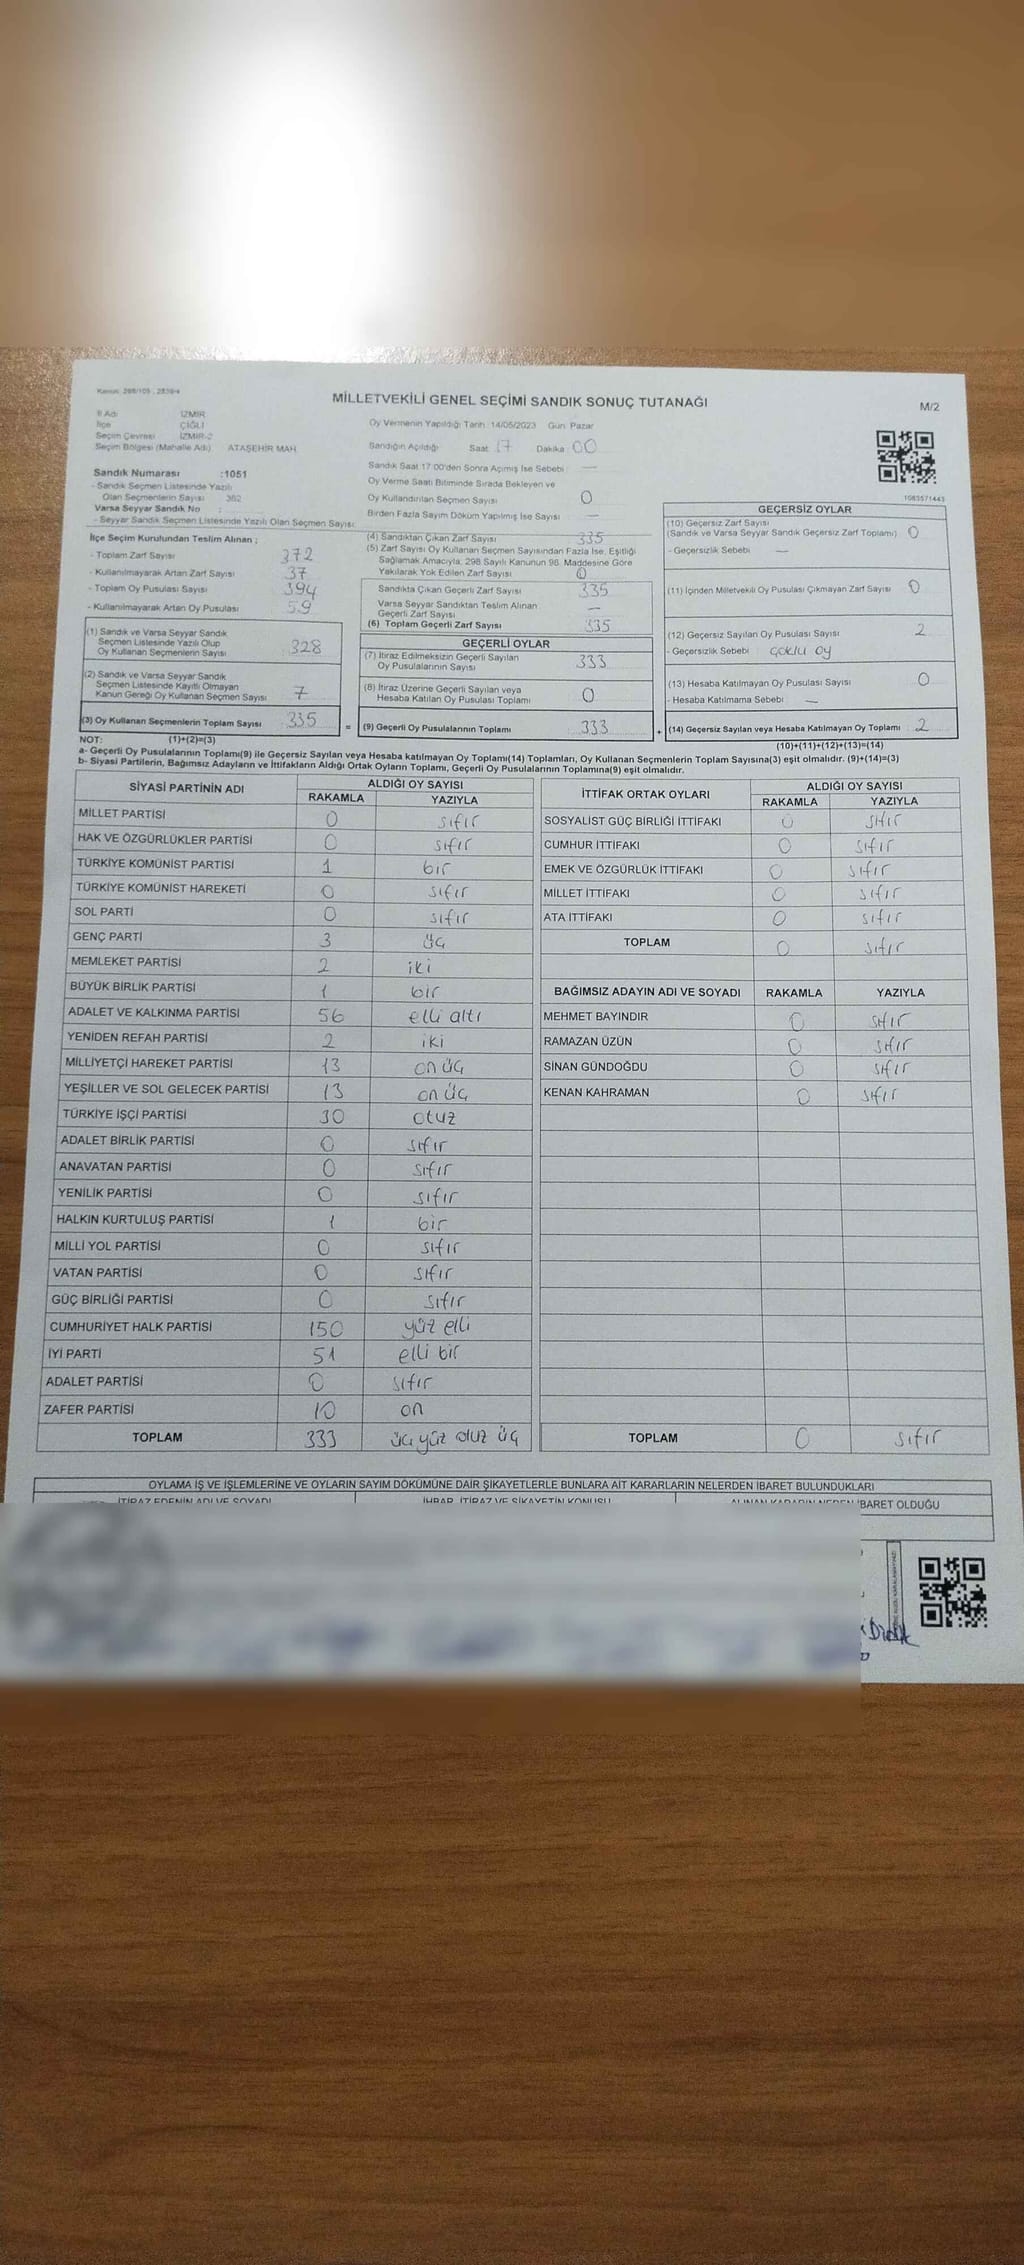 Kanun: 298/105 , 2839/4
MİLLETVEKİLİ GENEL SEÇİMİ SANDIK SONUÇ TUTANAĞI
M/2
İl Adı İZMİR
İlçe ÇİĞLİ
Seçim Çevresi İZMİR-2
Seçim Bölgesi (Mahalle Adı) ATAŞEHİR MAH.
Sandık Numarası :1051
- Sandık Seçmen Listesinde Yazılı
Olan Seçmenlerin Sayısı 362
Varsa Seyyar Sandık No :
- Seyyar Sandık Seçmen Listesinde Yazılı Olan Seçmen Sayısı:
Oy Vermenin Yapıldığı Tarih 14/05/2023 Gün: Pazar
Sandığın Açıldığı Saat: 17 Dakika: 00
Sandık Saat 17:00'den Sonra Açımış İse Sebebi : —
Oy Verme Saati Bitiminde Sırada Bekleyen ve
Oy Kullandırılan Seçmen Sayısı 0
Birden Fazla Sayım Döküm Yapılmış İse Sayısı : —
1083571443
İlçe Seçim Kurulundan Teslim Alınan ;
- Toplam Zarf Sayısı 372
- Kullanılmayarak Artan Zarf Sayısı 37
- Toplam Oy Pusulası Sayısı 394
- Kullanılmayarak Artan Oy Pusulası 59
(1) Sandık ve Varsa Seyyar Sandık
Seçmen Listesinde Yazılı Olup
Oy Kullanan Seçmenlerin Sayısı 328
(2) Sandık ve Varsa Seyyar Sandık
Seçmen Listesinde Kayıtlı Olmayan
Kanun Gereği Oy Kullanan Seçmen Sayısı 7
(3) Oy Kullanan Seçmenlerin Toplam Sayısı 335 =
(4) Sandıktan Çıkan Zarf Sayısı 335
(5) Zarf Sayısı Oy Kullanan Seçmen Sayısından Fazla İse, Eşitliği
Sağlamak Amacıyla; 298 Sayılı Kanunun 98. Maddesine Göre
Yakılarak Yok Edilen Zarf Sayısı 0
Sandıkta Çıkan Geçerli Zarf Sayısı 335
Varsa Seyyar Sandıktan Teslim Alınan
Geçerli Zarf Sayısı —
(6) Toplam Geçerli Zarf Sayısı 335
GEÇERLİ OYLAR
(7) İtiraz Edilmeksizin Geçerli Sayılan
Oy Pusulalarının Sayısı 333
(8) İtiraz Üzerine Geçerli Sayılan veya
Hesaba Katılan Oy Pusulası Toplamı 0
(9) Geçerli Oy Pusulalarının Toplamı 333 +
GEÇERSİZ OYLAR
(10) Geçersiz Zarf Sayısı
(Sandık ve Varsa Seyyar Sandık Geçersiz Zarf Toplamı) 0
- Geçersizlik Sebebi : —
(11) İçinden Milletvekili Oy Pusulası Çıkmayan Zarf Sayısı 0
(12) Geçersiz Sayılan Oy Pusulası Sayısı 2
- Geçersizlik Sebebi : çoklu oy
(13) Hesaba Katılmayan Oy Pusulası Sayısı 0
- Hesaba Katılmama Sebebi : —
(14) Geçersiz Sayılan veya Hesaba Katılmayan Oy Toplamı 2
NOT: (1)+(2)=(3)
(10)+(11)+(12)+(13)=(14)
a- Geçerli Oy Pusulalarının Toplamı(9) ile Geçersiz Sayılan veya Hesaba katılmayan Oy Toplamı(14) Toplamları, Oy Kullanan Seçmenlerin Toplam Sayısına(3) eşit olmalıdır. (9)+(14)=(3)
b- Siyasi Partilerin, Bağımsız Adayların ve İttifakların Aldığı Ortak Oyların Toplamı, Geçerli Oy Pusulalarının Toplamına(9) eşit olmalıdır.
SİYASİ PARTİNİN ADI ALDIĞI OY SAYISI
RAKAMLA YAZIYLA
MİLLET PARTİSİ 0 sıfır
HAK VE ÖZGÜRLÜKLER PARTİSİ 0 sıfır
TÜRKİYE KOMÜNİST PARTİSİ 1 bir
TÜRKİYE KOMÜNİST HAREKETİ 0 sıfır
SOL PARTİ 0 sıfır
GENÇ PARTİ 3 üç
MEMLEKET PARTİSİ 2 iki
BÜYÜK BİRLİK PARTİSİ 1 bir
ADALET VE KALKINMA PARTİSİ 56 elli altı
YENİDEN REFAH PARTİSİ 2 iki
MİLLİYETÇİ HAREKET PARTİSİ 13 on üç
YEŞİLLER VE SOL GELECEK PARTİSİ 13 on üç
TÜRKİYE İŞÇİ PARTİSİ 30 otuz
ADALET BİRLİK PARTİSİ 0 sıfır
ANAVATAN PARTİSİ 0 sıfır
YENİLİK PARTİSİ 0 sıfır
HALKIN KURTULUŞ PARTİSİ 1 bir
MİLLİ YOL PARTİSİ 0 sıfır
VATAN PARTİSİ 0 sıfır
GÜÇ BİRLİĞİ PARTİSİ 0 sıfır
CUMHURİYET HALK PARTİSİ 150 yüz elli
İYİ PARTİ 51 elli bir
ADALET PARTİSİ 0 sıfır
ZAFER PARTİSİ 10 on
TOPLAM 333 üç yüz otuz üç
İTTİFAK ORTAK OYLARI ALDIĞI OY SAYISI
RAKAMLA YAZIYLA
SOSYALİST GÜÇ BİRLİĞİ İTTİFAKI 0 sıfır
CUMHUR İTTİFAKI 0 sıfır
EMEK VE ÖZGÜRLÜK İTTİFAKI 0 sıfır
MİLLET İTTİFAKI 0 sıfır
ATA İTTİFAKI 0 sıfır
TOPLAM 0 sıfır
BAĞIMSIZ ADAYIN ADI VE SOYADI RAKAMLA YAZIYLA
MEHMET BAYINDIR 0 sıfır
RAMAZAN ÜZÜN 0 sıfır
SİNAN GÜNDOĞDU 0 sıfır
KENAN KAHRAMAN 0 sıfır
TOPLAM 0 sıfır
OYLAMA İŞ VE İŞLEMLERİNE VE OYLARIN SAYIM DÖKÜMÜNE DAİR ŞİKAYETLERLE BUNLARA AİT KARARLARIN NELERDEN İBARET BULUNDUKLARI
İTİRAZ EDENİN ADI VE SOYADI İHBAR, İTİRAZ VE ŞİKAYETİN KONUSU ALINAN KARARIN NEDEN İBARET OLDUĞU